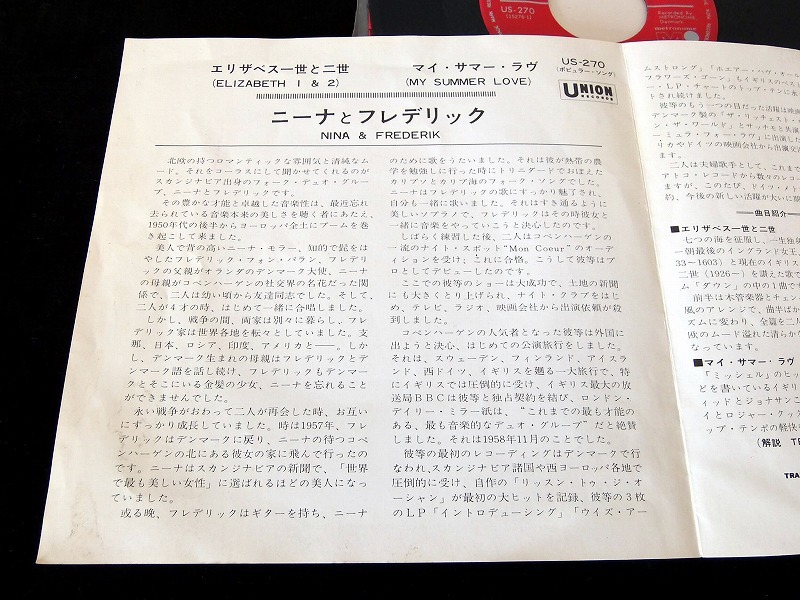 US-270
(15276.1)
Recorded By
METRONOME
Denmark
metronome
エリザベス一世と二世
(ELIZABETH I & 2)
マイ・サマー・ラヴ
(MY SUMMER LOVE)
US-270
(ポピュラー・ソング)
UNION
RECORDS
ニーナとフレデリック
NINA & FREDERIK
北欧の持つロマンティックな雰囲気と清純なム
ード。それをコーラスにして聞かせてくれるのが
スカンジナビア出身のフォーク・デュオ・グルー
プ、ニーナとフレデリックです。
その豊かな才能と卓越した音楽性は、最近忘れ
去られている音楽本来の美しさを聴く者にあたえ、
1950年代の後半からヨーロッパ全土にブームを巻
き起こして来ました。
美人で背の高いニーナ・モラー、知的で髭をは
やしたフレデリック・フォン・パラン、フレデリ
ックの父親がオランダのデンマーク大使、ニーナ
の母親がコペンハーゲンの社交界の名花だった関
係で、二人は幼い頃から友達同志でした。そして、
二人が4才の時、はじめて一緒に合唱しました。
しかし、戦争の間、両家は別々に暮らし、フレ
デリック家は世界各地を転々としていました。支
那、日本、ロシア、印度、アメリカと——。しか
し、デンマーク生まれの母親はフレデリックとデ
ンマーク語を話し続け、フレデリックもデンマー
クとそこにいる金髪の少女、ニーナを忘れること
ができませんでした。
永い戦争がおわって二人が再会した時、お互い
にすっかり成長していました。時は1957年、フレ
デリックはデンマークに戻り、ニーナの待つコペ
ンハーゲンの北にある彼女の家に飛んで行ったの
です。ニーナはスカンジナビアの新聞で、「世界
で最も美しい女性」に選ばれるほどの美人になっ
ていました。
或る晩、フレデリックはギターを持ち、ニーナ
のために歌をうたいました。それは彼が熱帯の農
学を勉強しに行った時にトリニダードでおぼえた
カリプソとカリブ海のフォーク・ソングでした。
ニーナはフレデリックの歌にすっかり魅了され、
自分も一緒に歌いました。それはすき通るように
美しいソプラノで、フレデリックはその時彼女と
一緒に音楽をやっていこうと決心したのです。
しばらく練習した後、二人はコペンハーゲンの
一流のナイト・スポット“Mon Coeur”のオーデ
ィションを受け、これに合格。こうして彼等はプ
ロとしてデビューしたのです。
ここでの彼等のショーは大成功で、土地の新聞
にも大きくとり上げられ、ナイト・クラブをはじ
め、テレビ、ラジオ、映画会社から出演依頼が殺
到しました。
コペンハーゲンの人気者となった彼等は外国に
出ようと決心、はじめての公演旅行をしました。
それは、スウェーデン、フィンランド、アイスラ
ンド、西ドイツ、イギリスを廻る一大旅行で、特
にイギリスでは圧倒的に受け、イギリス最大の放
送局BBCは彼等と独占契約を結び、ロンドン・
デイリー・ミラー紙は、“これまでの最も才能の
ある、最も音楽的なデュオ・グループ”だと絶賛
しました。それは1958年11月のことでした。
彼等の最初のレコーディングはデンマークで行
なわれ、スカンジナビア諸国や西ヨーロッパ各地で
圧倒的に受け、自作の「リッスン・トゥ・ジ・オ
ーシャン」が最初の大ヒットを記録、彼等の3枚
のLP「イントロデューシング」「ウイズ・アー
ムストロング」「ホエアー・ハヴ・オール
フラワーズ・ゴーン」もイギリスのベス
ー・LP・チャートのトップ・テンに永い
トされ続けました。
彼等のもう一つの目だった活躍は映画
デンマーク製の「ザ・リッチェスト・
ン・ザ・ワールド」とサッチモと共演
ーミュラ・フォー・ラヴ」に出演した
リカやドイツの映画会社から出演交渉
ます。
二人は夫婦歌手として、これまで
アトコ・レコードから数々のレコー
ますが、このたび、ドイツ・メト
約、今後の新しい活躍が大いに期
——曲目紹介——
■エリザベス一世と二世
七つの海を征服し、一生独
一朝最後のイングランド女王
33〜1603）と現在のイギリス
二世（1926〜）を讃えた歌で
ム「ダウン」の中の1曲です
前半は木管楽器とチェン
風のアレンジで、曲半ばか
ズムに変わり、全篇を二人
欧のムード溢れた清らか
なっています。
■マイ・サマー・ラヴ
「ミッシェル」のヒッ
どを書いているイギリ
ィッドとジョナサンこ
イとロジャー・クック
ップ・テンポの軽快
（解説 TR
TRA